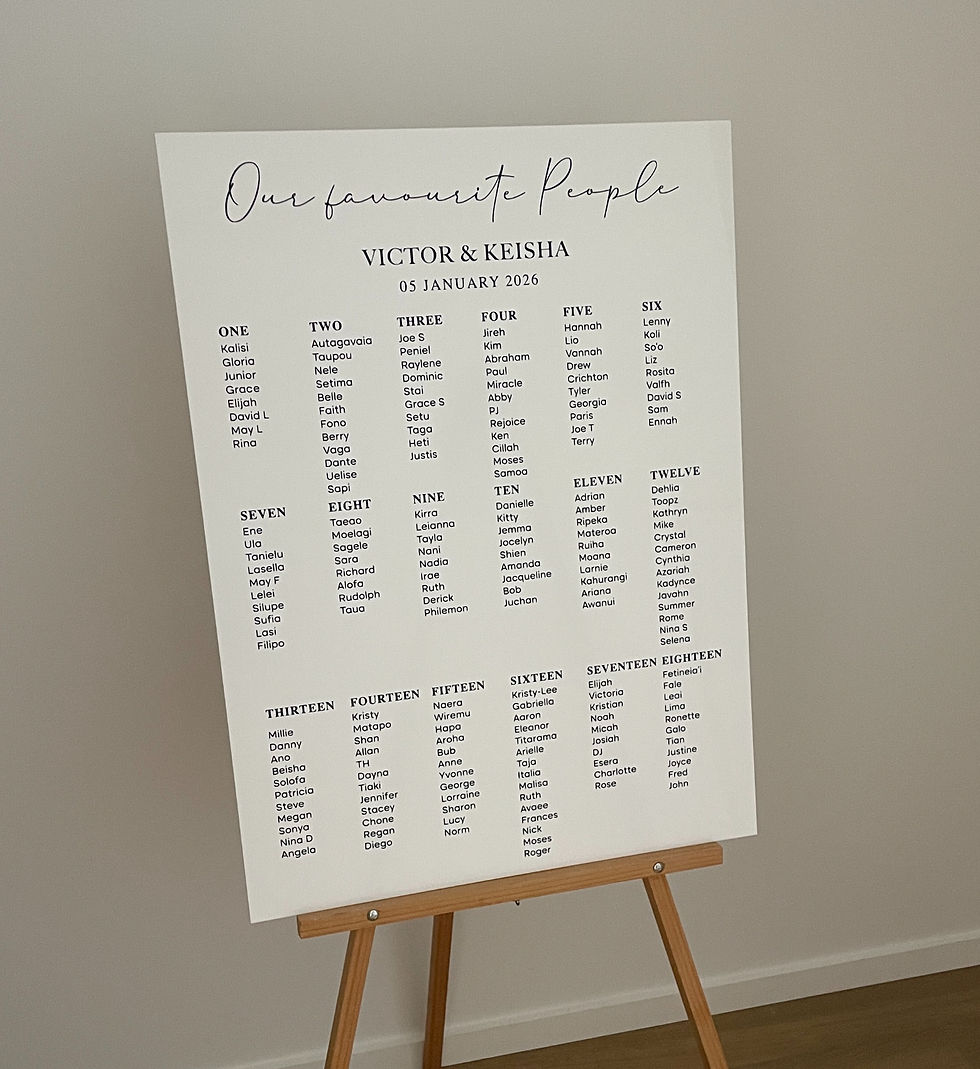 Our favourite People
VICTOR & KEISHA
05 JANUARY 2026
ONE
Kalisi
Gloria
Junior
Grace
Elijah
David L
May L
Rina
TWO
Autagavaia
Taupou
Nele
Setima
Belle
Faith
Fono
Berry
Vaga
Dante
Uelise
Sapi
THREE
Joe S
Peniel
Raylene
Dominic
Stai
Grace S
Setu
Taga
Heti
Justis
FOUR
Jireh
Kim
Abraham
Paul
Miracle
Abby
PJ
Rejoice
Ken
Cillah
Moses
Samoa
FIVE
Hannah
Lio
Vannah
Drew
Crichton
Tyler
Georgia
Paris
Joe T
Terry
SIX
Lenny
Koli
So'o
Liz
Rosita
Valfh
David S
Sam
Ennah
SEVEN
Ene
Ula
Tanielu
Lasella
May F
Lelei
Silupe
Sufia
Lasi
Filipo
EIGHT
Taeao
Moelagi
Sagele
Sara
Richard
Alofa
Rudolph
Taua
NINE
Kirra
Leianna
Tayla
Nani
Nadia
Irae
Ruth
Derick
Philemon
TEN
Danielle
Kitty
Jemma
Jocelyn
Shien
Amanda
Jacqueline
Bob
Juchan
ELEVEN
Adrian
Amber
Ripeka
Materoa
Ruiha
Moana
Larnie
Kahurangi
Ariana
Awanui
TWELVE
Dehlia
Toopz
Kathryn
Mike
Crystal
Cameron
Cynthia
Azariah
Kadynce
Javahn
Summer
Rome
Nina S
Selena
THIRTEEN
Millie
Danny
Ano
Beisha
Solofa
Patricia
Steve
Megan
Sonya
Nina D
Angela
FOURTEEN
Kristy
Matapo
Shan
Allan
TH
Dayna
Tiaki
Jennifer
Stacey
Chone
Regan
Diego
FIFTEEN
Naera
Wiremu
Hapa
Aroha
Bub
Anne
Yvonne
George
Lorraine
Sharon
Lucy
Norm
SIXTEEN
Kristy-Lee
Gabriella
Aaron
Eleanor
Titarama
Arielle
Taja
Italia
Malisa
Ruth
Avaee
Frances
Nick
Moses
Roger
SEVENTEEN
Elijah
Victoria
Kristian
Noah
Micah
Josiah
DJ
Esera
Charlotte
Rose
EIGHTEEN
Fetineia'i
Fale
Leai
Lima
Ronette
Galo
Tian
Justine
Joyce
Fred
John